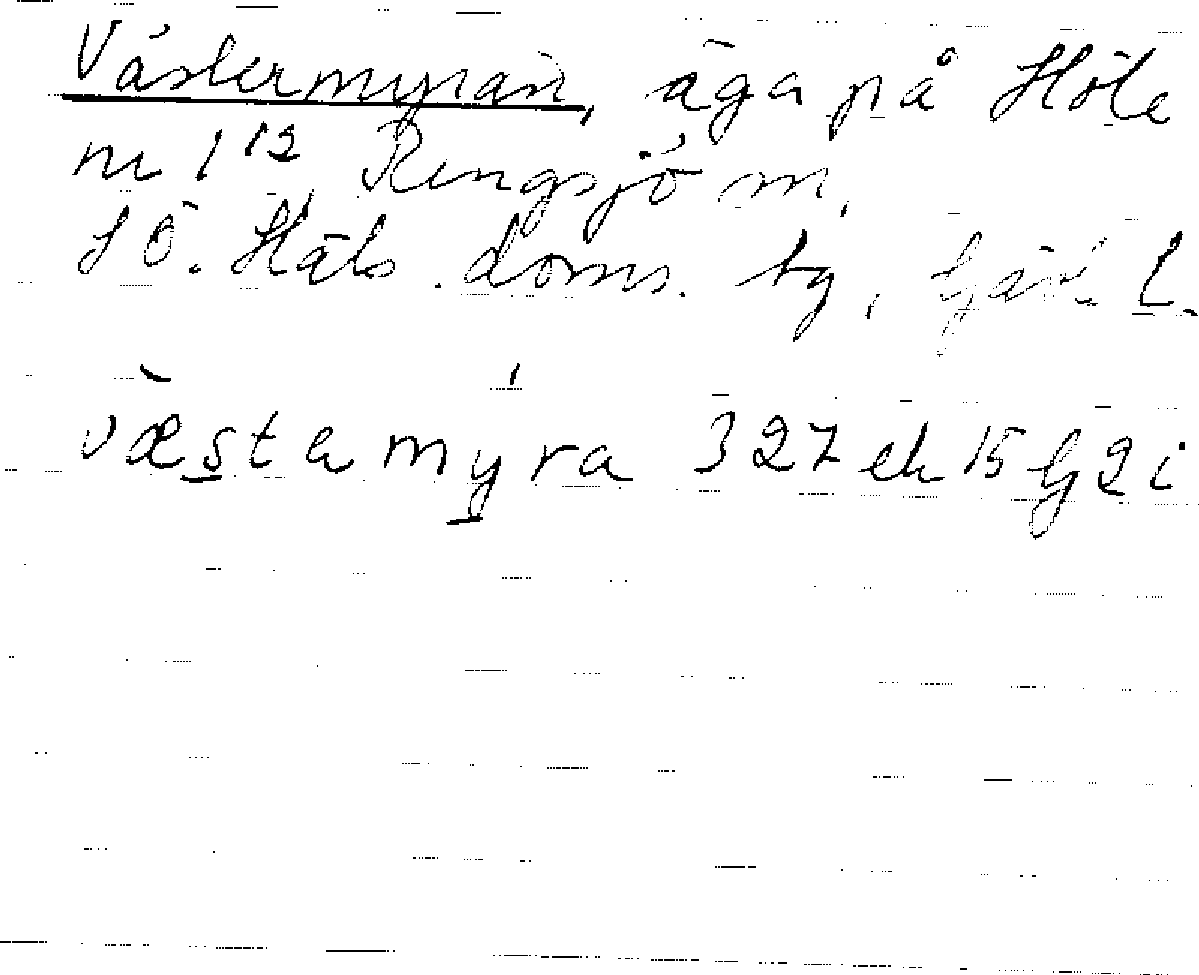 Västermyran, äga på Höle
nr 1¹² Rengsjö sn,
SÖ. Häls. doms. tg, Gäv. l.
væstamýra 327 ek 15 fj 2 i